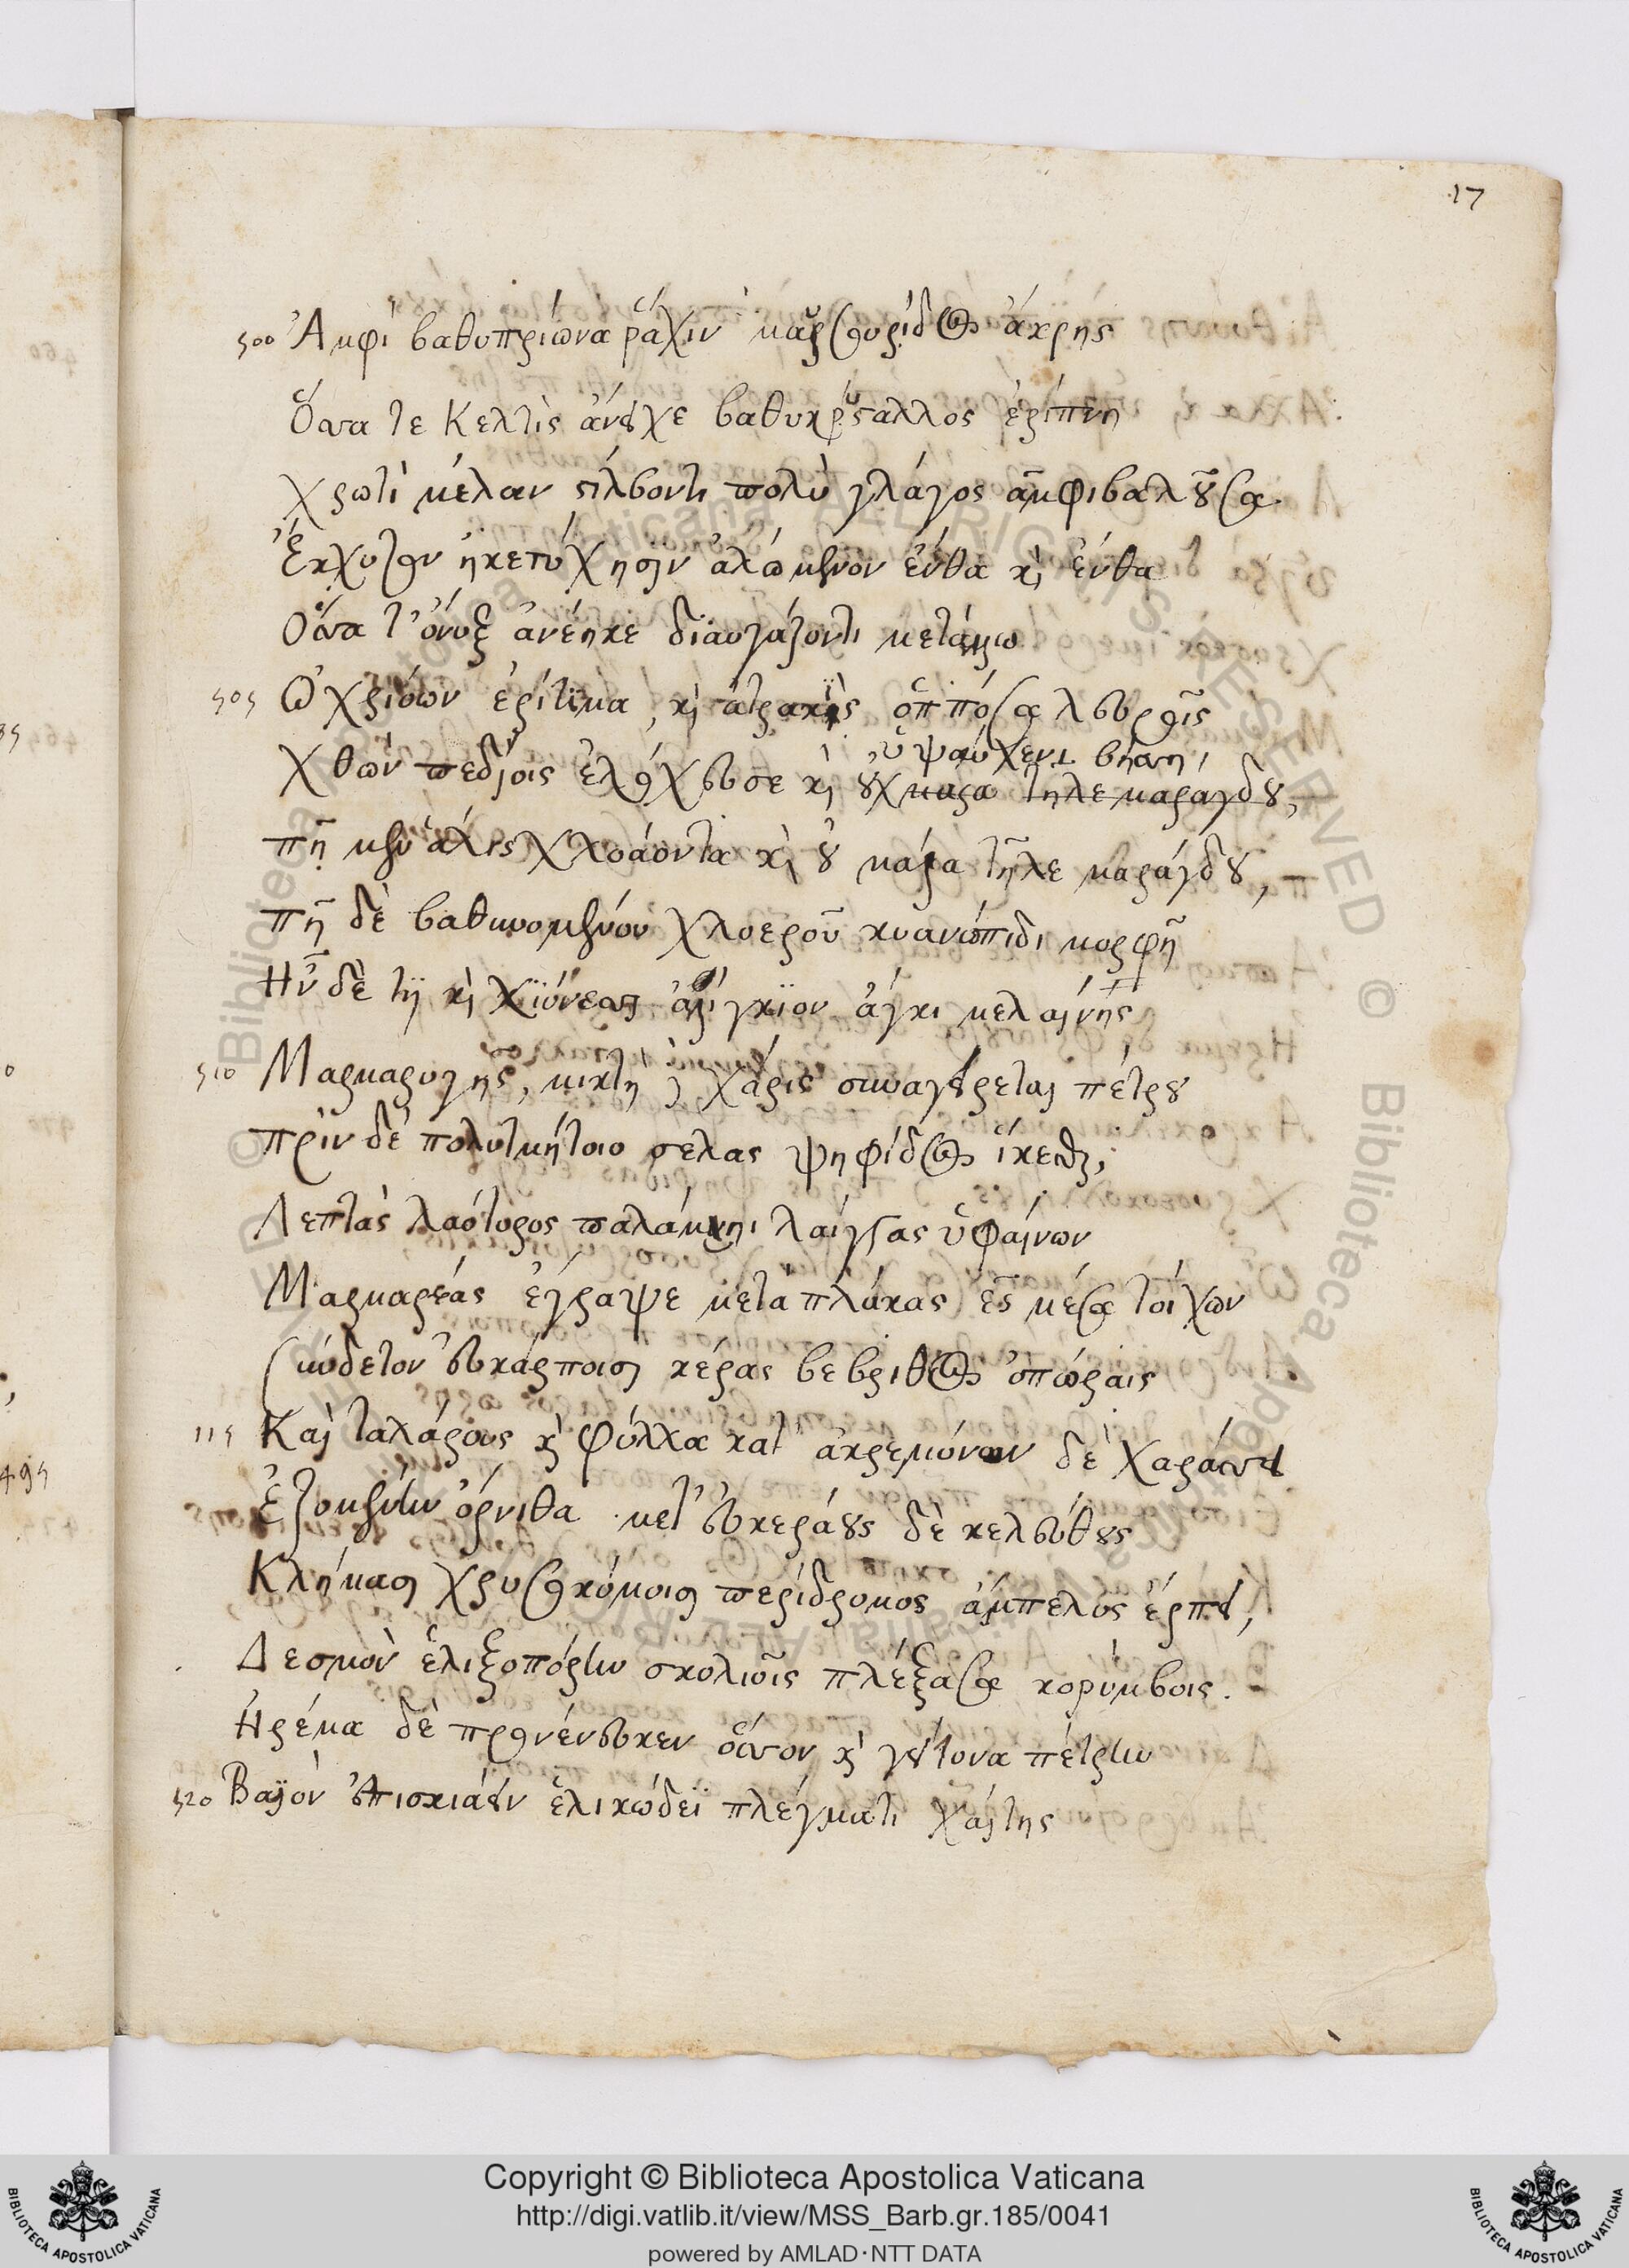 17
500 Ἀμφὶ βαθυπρίωνα ῥάχιν μαυρουσίδος ἄκρης
Ὅσσα τε Κελτὶς ἄνειχε βαθυκρύσταλλος ἐρίπνη
χρωτὶ μέλαν στίλβοντι πολὺ γλάγος ἀμφιβαλοῦσα
Ἔκχυτον ἠκετύχησιν ἀλώμενον ἔνθα καὶ ἔνθα
Ὅσσα τ' ὄνυξ ἀνέηκε διαυγάζοντι μετάλλω
505 Ὠχριόων ἐρίτιμα, καὶ ἀτρακὶς ὁππόσα λευροῖς
χθὼν πεδίοις ἐλόχευσε καὶ οὐχ
ὑψαύχενι βήσσῃ,
πῆ μὲν ἅλις χλοάοντα καὶ οὐ μάλα τῆλε μαράγδου,
πῆ δὲ βαθυνομένου χλοεροῦ κυανώπιδι μορφῇ
Ἦν δέ τι καὶ χιόνεσσι ἀλίγκιον ἄγχι μελαίνης
510 Μαρμαρυγῆς, μικτὴ δὲ χάρις συναγείρεται πέτρου
πρὶν δὲ πολυτμήτοιο σέλας ψηφίδος ἱκέσθαι,
Λεπτὰς λαοτόρος παλάμῃ λάιγγας ὑφαίνων
Μαρμαρέας ἔγραψε μετὰ πλάκας ἐς μέσα τοίχων
Σύνδετον εὐκάρποισι κέρας βεβριθὸς ὀπώραις
515 Καὶ ταλάρους καὶ φύλλα κατ' ἀκρεμόνων δὲ χαράσσει
ἑζομένην ὄρνιθα μετ' εὐκεράους δὲ κελεύθους
Κλήμασι χρυσοκόμοισι περίδρομος ἄμπελος ἕρπει,
Δεσμὸν ἑλιξοπόρην σκολιοῖς πλέξασα κορύμβοις.
Ἠρέμα δὲ προνένευκεν ὅσσον καὶ γείτονα πέτρην
520 Βαιὸν ἐπισκιάειν ἑλικώδεϊ πλέγματι χαίτης
Copyright © Biblioteca Apostolica Vaticana
http://digi.vatlib.it/view/MSS_Barb.gr.185/0041
powered by AMLAD·NTT DATA
BIBLIOTECA APOSTOLICA VATICANA
BIBLIOTECA APOSTOLICA VATICANA